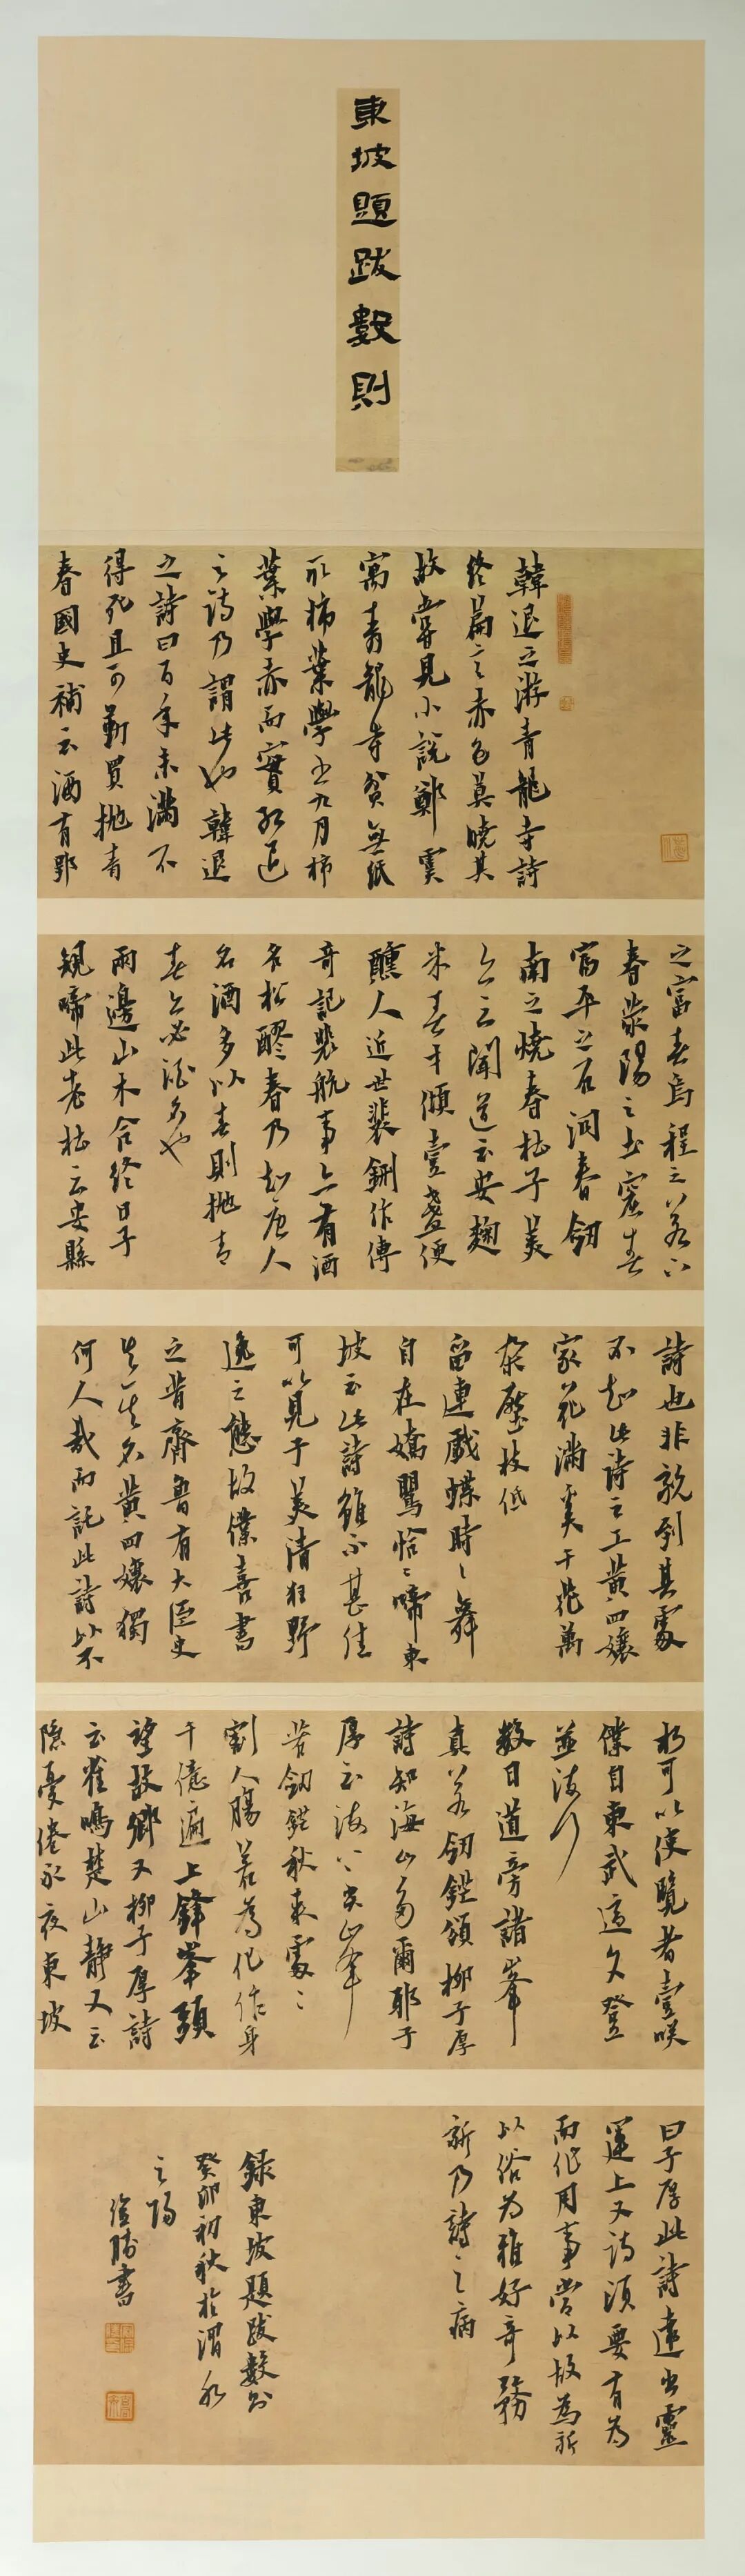 東坡題跋數則
韓退之游青龍寺詩
終篇言赤色莫曉其
故嘗見小說鄭虔
寓青龍寺貧無紙
取柿葉學書九月柿
葉學赤而實紅退
之詩乃謂此也韓退
之詩曰百年未滿不
得死且可勤買抛青
春國史補云酒有郢
之富春烏程之若下
春滎陽之土窟春
富平之石洞春劒
南之燒春杜子美
亦云聞道云安麴
米春才傾壹盞便
醺人近世裴鉶作傳
奇記裴航事亦有酒
名松醪春乃知唐人
名酒多以春則抛青
春亦必酒名也
兩邊山木合終日子
規啼此老杜云安縣
詩也非親到其處
不知此詩之工黃四孃
家花滿蹊千朶萬
朶壓枝低
留連戲蝶時〻舞
自在嬌鶯恰〻啼東
坡云此詩雖不甚佳
可以見子美清狂野
逸之態故僕喜書
之昔齊魯有大臣史
失其名黃四孃獨
何人哉而託此詩以不
朽可以使覽者壹咲
僕自東武適文登
並海行
數日道旁諸峯
真若劒鋩頌柳子厚
詩知海山多爾耶子
厚云海上尖山峯
若劒鋩秋來處〻
割人腸若為化作身
千億遍上鋒峯頭
望故鄉又柳子厚詩
云雀鳴楚山靜又云
隱憂倦永夜東坡
曰子厚此詩遠出靈
運上又詩須要有為
而作用事當以故為新
以俗為雅好奇務
新乃詩之病
錄東坡題跋數則
癸卯初秋於渭水
之陽
書